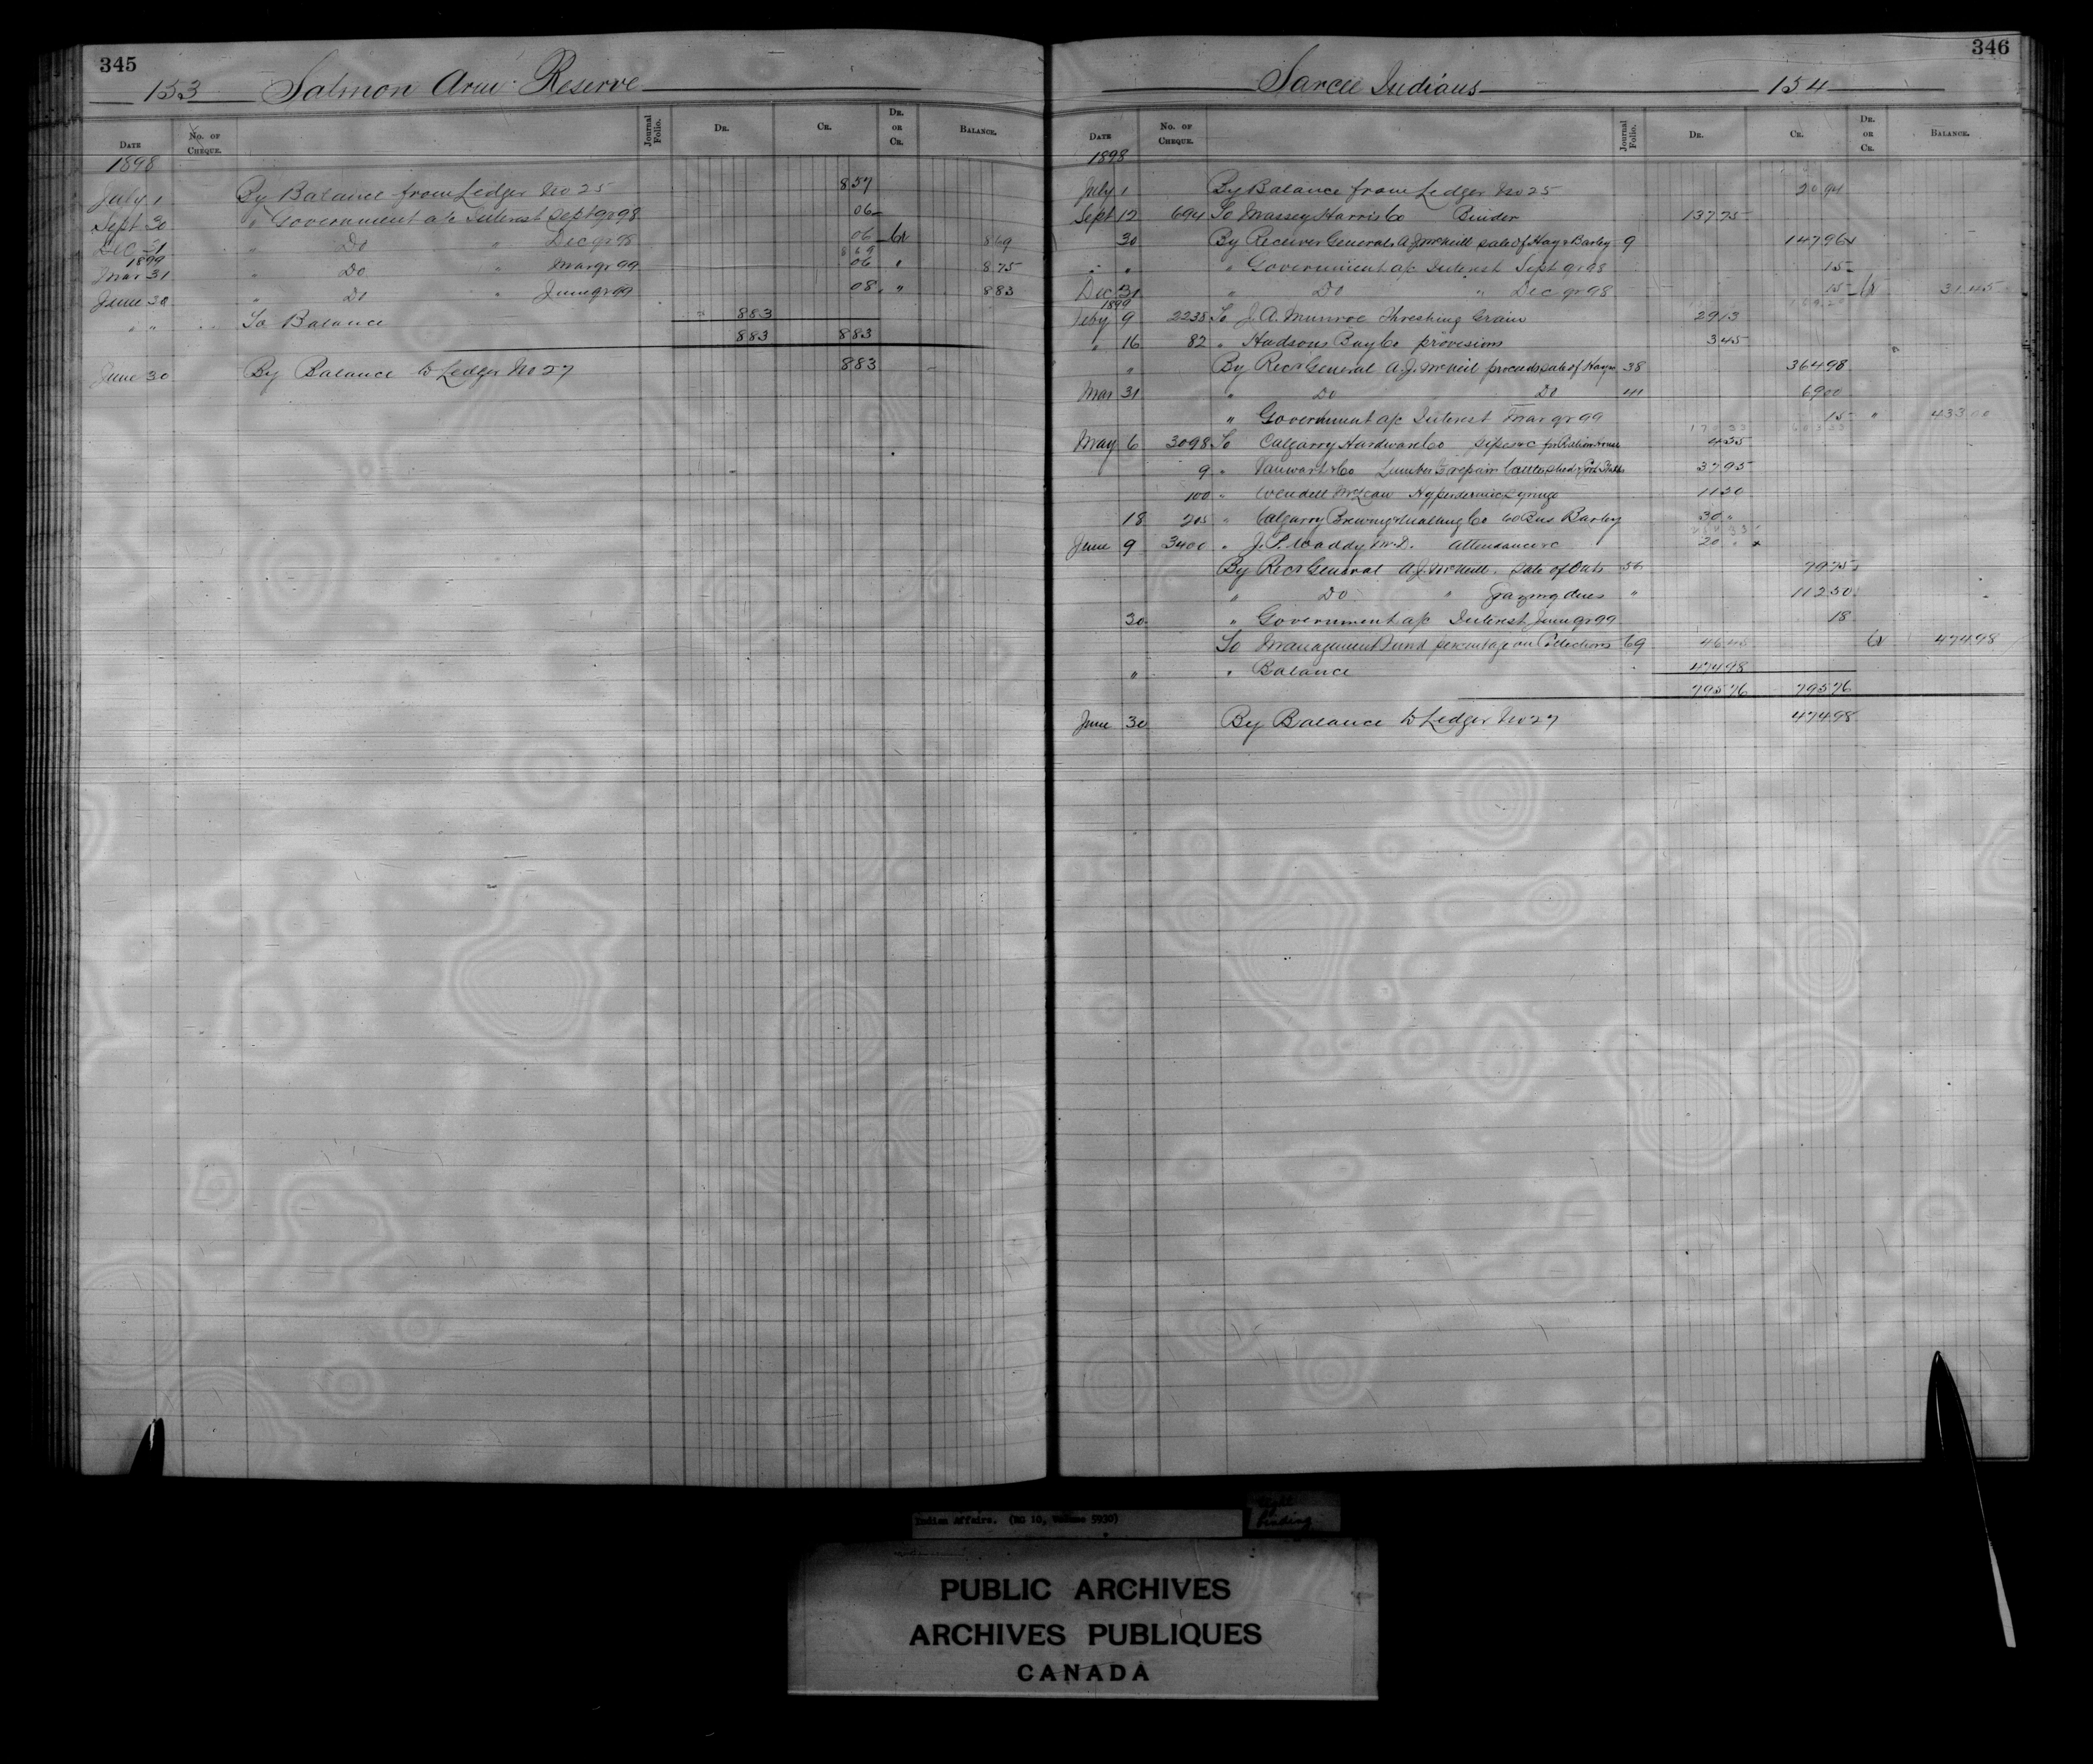 345
153 Salmon Arm Reserve
Date No. of Cheque. Journal Folio. Dr. Cr. Dr. or Cr. Balance.
1898
July 1 By Balance from Ledger No 25 857
Sept 30 " Government a/c Interest Sept qr 98 06
Dec 31 " Do " Dec qr 98 06 Cr 869
869
1899
Mar 31 " Do " Mar qr 99 06 " 875
June 30 " Do " June qr 99 08 " 883
" " To Balance 883
883 883
June 30 By Balance to Ledger No 27 883
346
Sarcee Indians 154
Date No. of Cheque. Journal Folio. Dr. Cr. Dr. or Cr. Balance.
1898
July 1 By Balance from Ledger No 25 2094
Sept 12 694 To Massey Harris Co Binder 13775
30 By Receiver General A J McNeill sale of Hay & Barley 9 14796
" " " Government a/c Interest Sept qr 98 15
Dec 31 " Do " Dec qr 98 15 Cr 3145
16920
1899
Feby 9 2238 To J. A. Munroe Threshing Grain 2913
" 16 82 " Hudsons Bay Co provisions 345
" By Recr General A. J. McNeil proceeds sale of Hay 38 36498
Mar 31 " Do Do 41 6900
" Government a/c Interest Mar qr 99 15 " 43300
17033 60333
May 6 3098 To Calgarry Hardware Co pipes &c for Ration House 435
9 " Vanwart & Co Lumber to repair Cattle shed 3795
100 " Wendell McLean Hypodermic Syringe 1150
18 205 " Calgarry Brewing & Malting Co 60 Bus Barley 30 "
June 9 3400 " J. S. Waddy M.D. Attendance &c 20 "
By Recr General A J McNeill Sale of Oats 56 7975
" Do " Grazing dues " 11250
30 " Government a/c Interest June qr 99 18
To Management Fund percentage on Collections 69 4645 Cr 47498
" " Balance 47498
79576 79576
June 30 By Balance to Ledger No 27 47498
Indian Affairs. (RG 10, Volume 5930)
Tight binding
PUBLIC ARCHIVES
ARCHIVES PUBLIQUES
CANADA